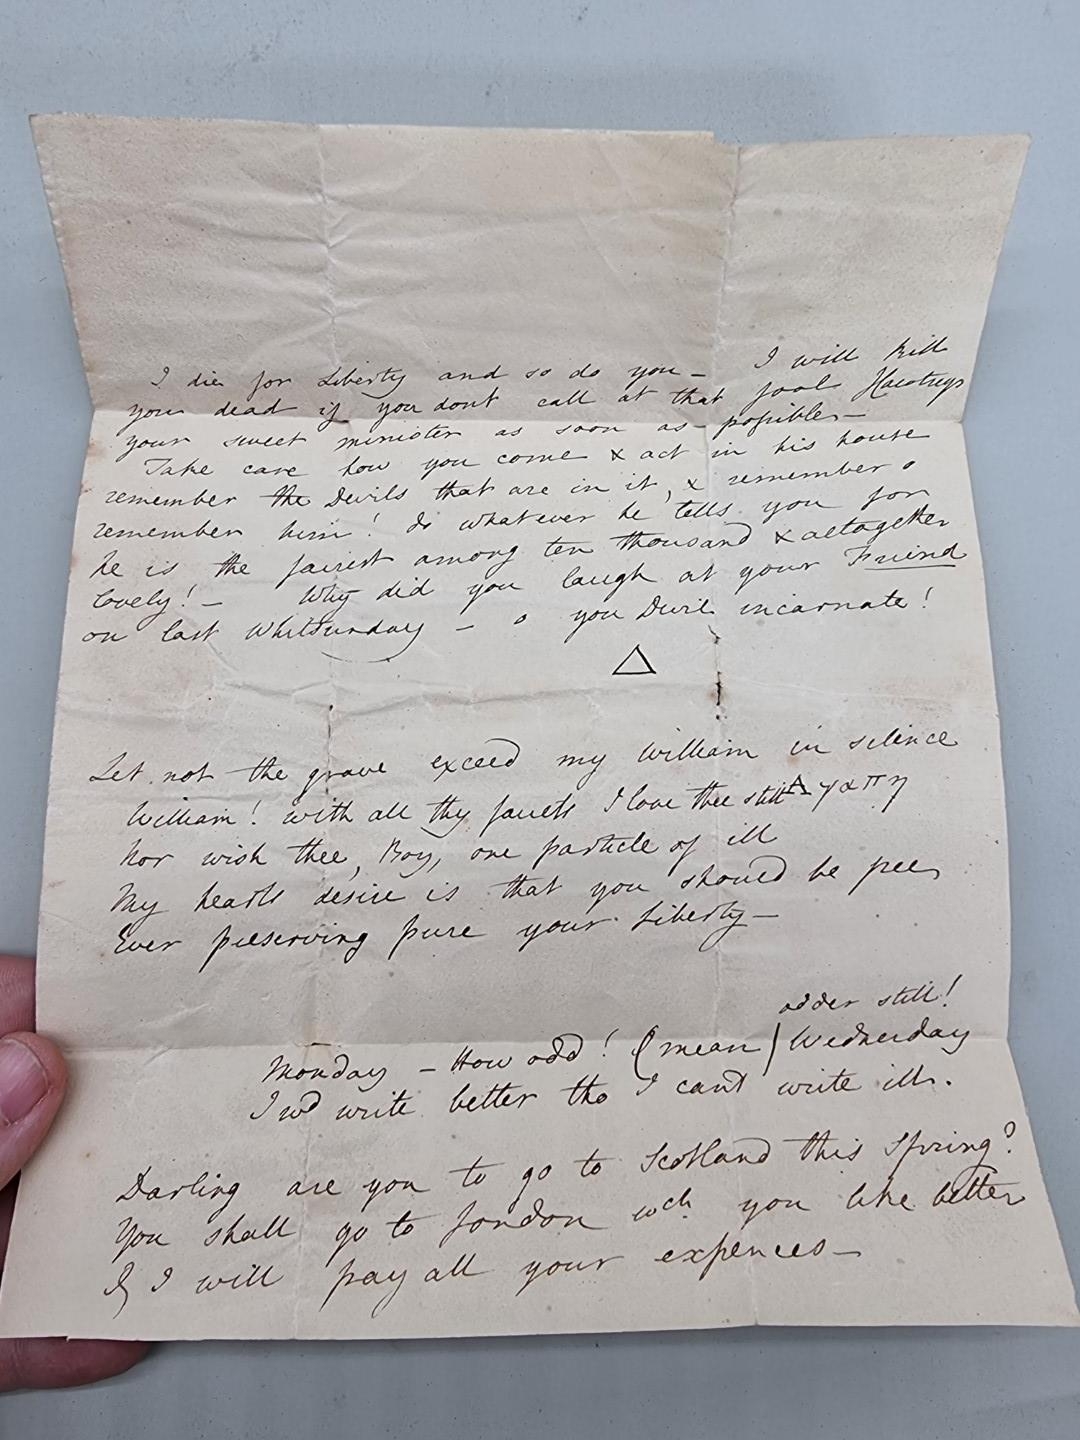 I die for Liberty and so do you – I will kill
you dead if you dont call at that fool
your sweet minister as soon as possible –
Take care how you come & act in his house
remember the Devils that are in it, & remember o
remember him! do whatever he tells you for
he is the fairest among ten thousand & altogether
lovely! – Why did you laugh at your Friend
on last Whitsunday – o you Devil incarnate!
△
Let not the grave exceed my William in silence
William! with all thy faults I love thee still γαπη
Nor wish thee, Boy, one particle of ill
My hearts desire is that you should be free
Ever preserving pure your Liberty –
odder still!
Monday – How odd! (mean) Wednesday
I wd write better tho I cant write ill.
Darling are you to go to Scotland this Spring?
You shall go to London wch you like better
& I will pay all your expences –